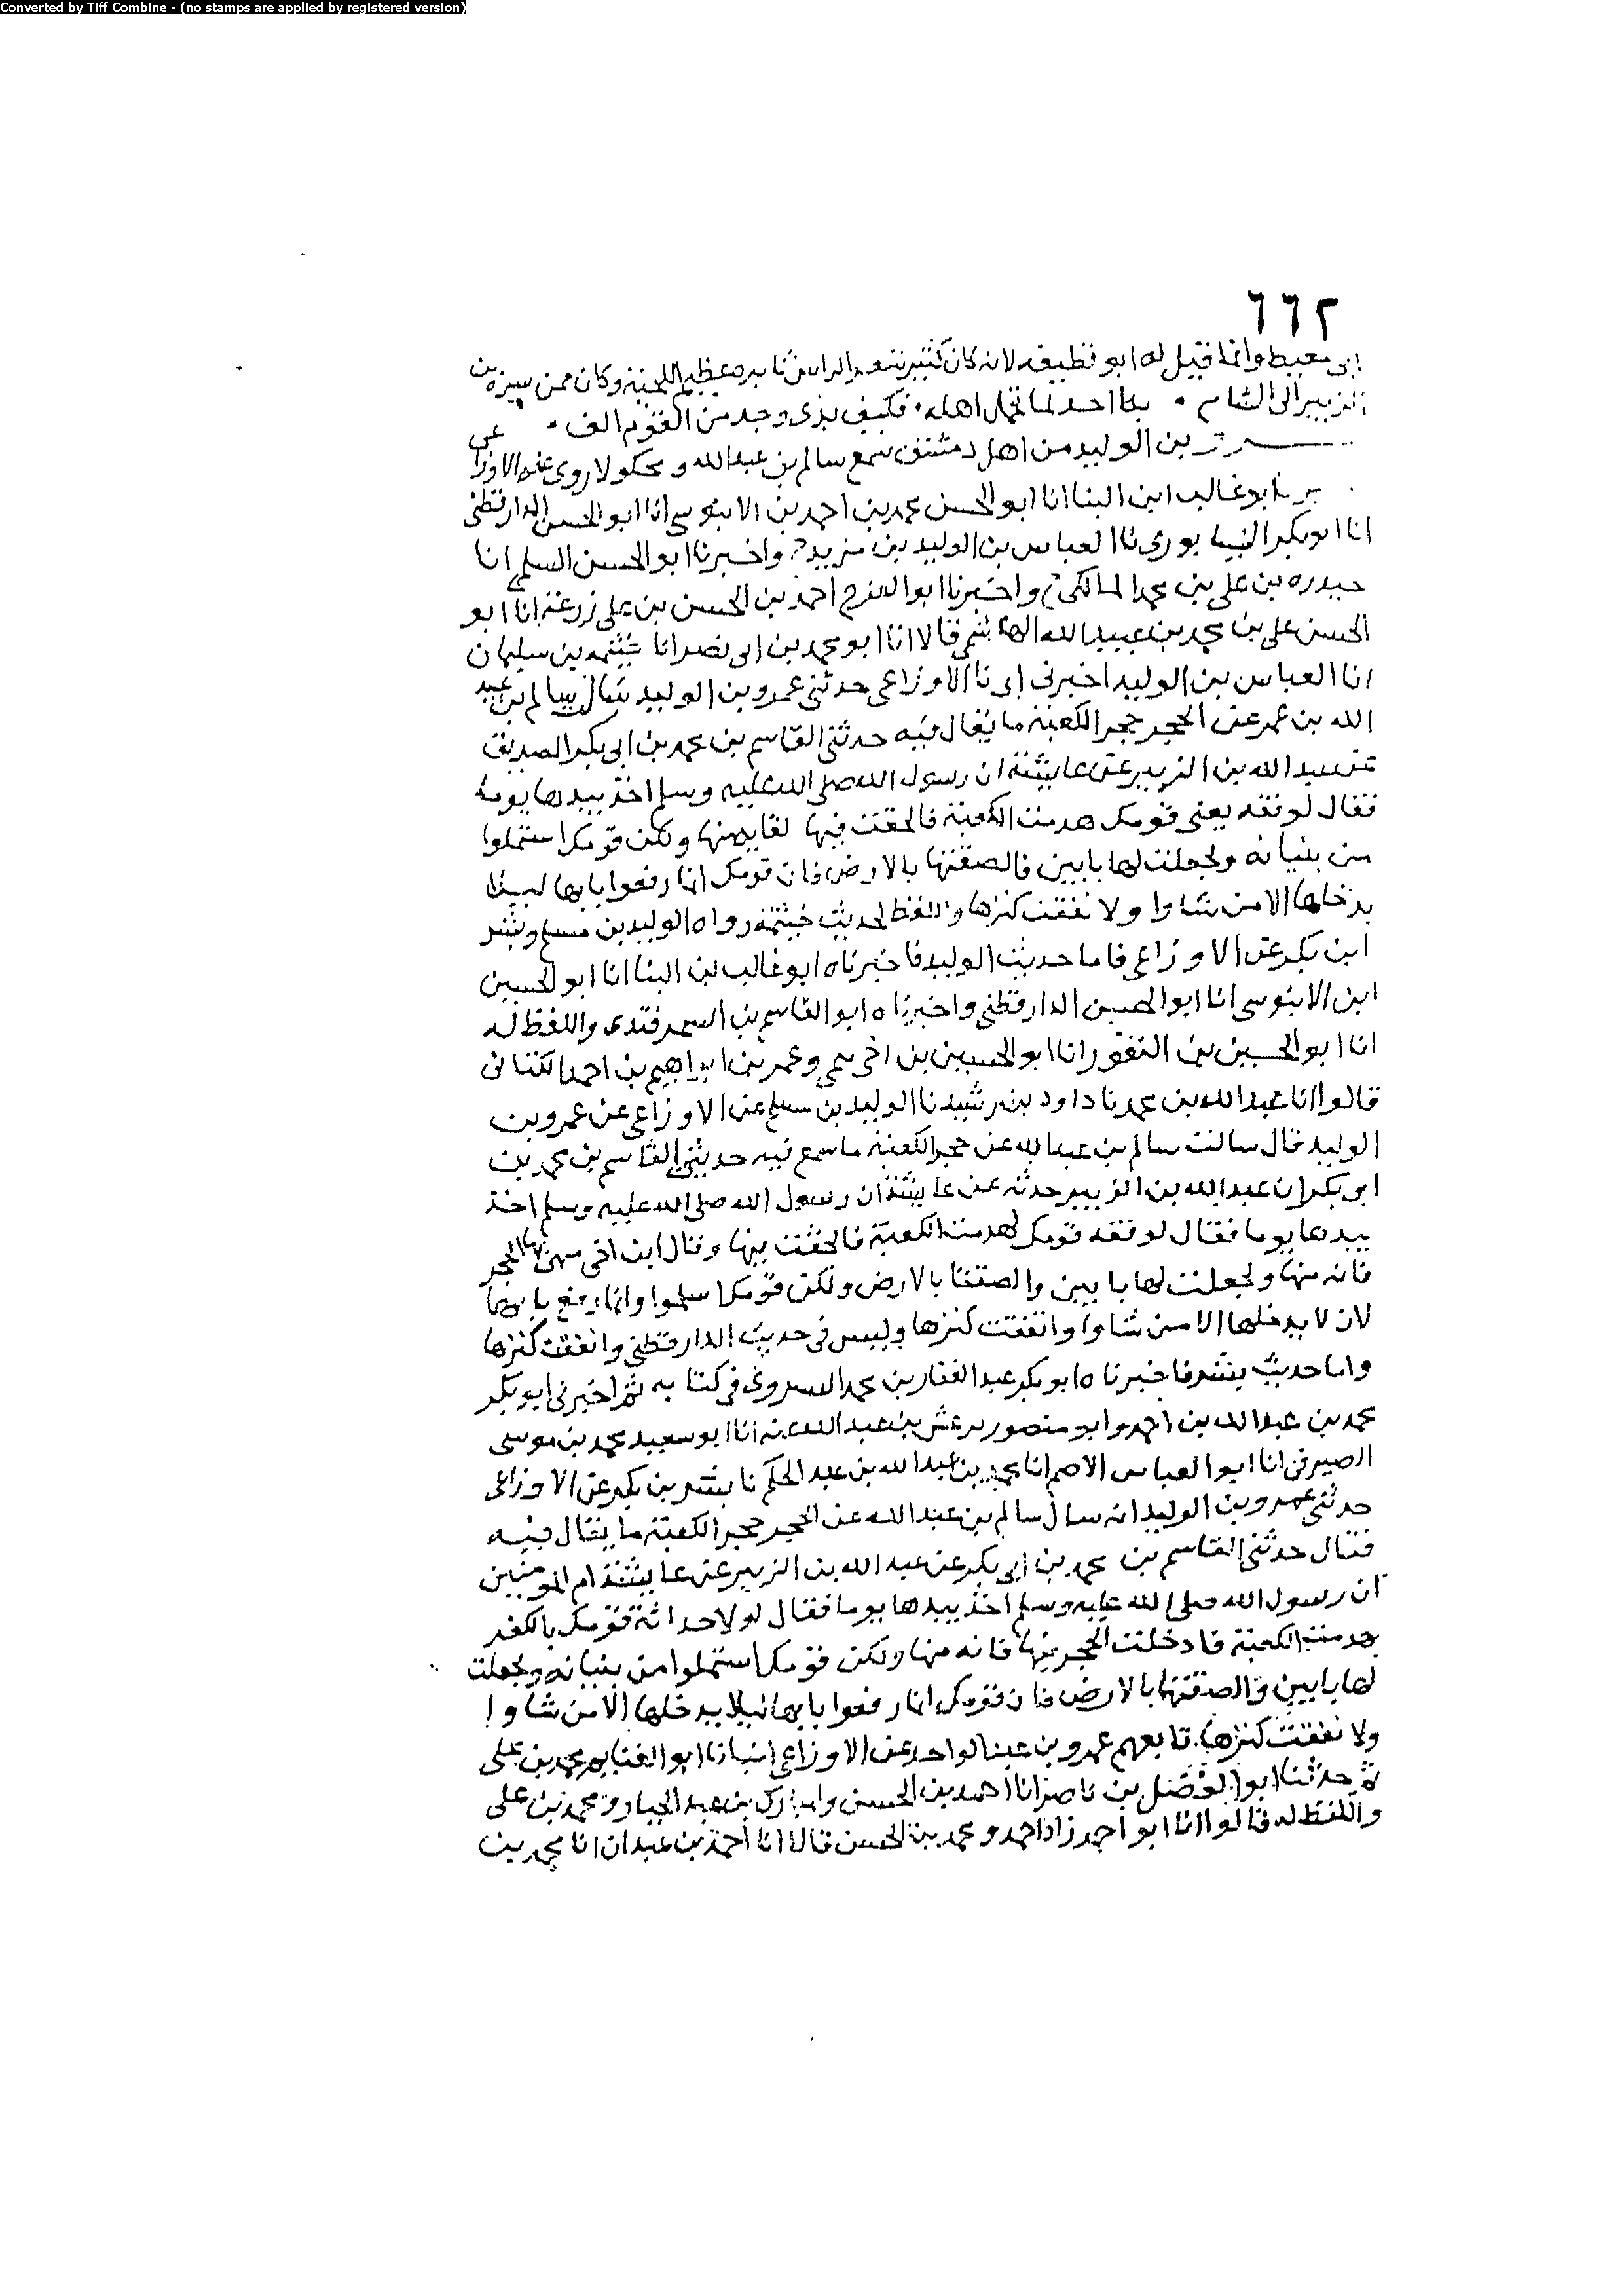 Converted by Tiff Combine - (no stamps are applied by registered version)
٦٦٢
ابى معيط وانما قيل له ابو قطيفه لانه كان كثير شعر الراس عظيم اللحية وكان ممن سيره بن
الزبير الى الشام بكا احد لما تحمل اهله فكيف بذى وجد من القوم الف
بن الوليد من اهل دمشق سمع سالم بن عبد الله و مكحولا روى عنه الاوزاعى
ابو غالب ابن البنا انا ابو الحسن محمد بن احمد بن الابنوسى انا ابو الحسن الدارقطنى
انا ابو بكر النيسابورى نا العباس بن الوليد بن مزيد واخبرنا ابو الحسن السلمى انا
حيدره بن على بن محمد المالكى واخبرنا ابو الفرج احمد بن الحسن بن على زرعة انا ابو
الحسن على بن محمد بن عبيد الله الهاشمى قالا انا ابو محمد بن ابى نصر انا خيثمه بن سليمان
انا العباس بن الوليد اخبرنى ابى نا الاوزاعى حدثنى عمرو بن الوليد سال سالم بن عبد
الله بن عمر عن الحجر حجر الكعبة ما يقال فيه حدثنى القاسم بن محمد بن ابى بكر الصديق
عن عبد الله بن الزبير عن عايشة ان رسول الله صلى الله عليه وسلم اخذ بيدها يوما
فقال لو فقه يعنى قومك هدمت الكعبة فالحقت فيها ولكن قومك استملوا
من بنيانه ولجعلت لها بابين فالصقتها بالارض فان قومك انما رفعوا بابها ليلا
يدخلها الا من شاوا ولا نفقت كنزها واللفظ لحديث خيثمة رواه الوليد بن مسلم وبشر
ابن بكر عن الاوزاعى فاما حديث الوليد فاخبرناه ابو غالب بن البنا انا ابو الحسين
ابن الابنوسى انا ابو الحسين الدارقطنى واخبرناه ابو القاسم بن السمرقندى واللفظ له
انا ابو الحسين بن النقور انا ابو الحسين بن اخى ميمى وعمر بن ابراهيم بن احمد الكتانى
قالوا انا عبد الله بن محمد نا داود بن رشيد نا الوليد بن مسلم عن الاوزاعى عن عمرو بن
الوليد قال سالت سالم بن عبد الله عن حجر الكعبة ما سمع فيه حديثى القاسم بن محمد بن
ابى بكر ان عبد الله بن الزبير حدثه عن عايشة ان رسول الله صلى الله عليه وسلم اخذ
بيدها يوما فقال لو فقه قومك لهدمت الكعبة فالحقت فيها وقال ابن اخى ميمى الحجر
فانه منها ولجعلت لها بابين والصقتها بالارض ولكن قومك استملوا وانما رفع بابها
لان لا يدخلها الا من شاوا وانفقت كنزها وليس فى حديث الدارقطنى وانفقت كنزها
واما حديث بشر فاخبرناه ابو بكر عبد الغفار بن محمد السروى فى كتابه ثم اخبرنى ابو بكر
محمد بن عبد الله بن احمد وابو منصور برغش بن عبد الله عنه انا ابو سعيد محمد بن موسى
الصيرفى انا ابو العباس الاصم انا محمد بن عبد الله بن عبد الحكم نا بشر بن بكر عن الاوزاعى
حدثنى عمرو بن الوليد انه سال سالم بن عبد الله عن الحجر حجر الكعبة ما يقال فيه
فقال حدثنى القاسم بن محمد بن ابى بكر عن عبد الله بن الزبير عن عايشة ام المومنين
ان رسول الله صلى الله عليه وسلم اخذ بيدها يوما فقال لولا حداثة قومك بالكفر
هدمت الكعبة فادخلت الحجر فيها فانه منها ولكن قومك استملوا من بنيانه ولجعلت
لها بابين والصقتها بالارض فان قومك انما رفعوا بابها ليلا يدخلها الا من شاوا
ولا نفقت كنزها تابعهم عمرو بن عبد الواحد عن الاوزاعى انبانا ابو الغنايم محمد بن على
ثم حدثنا ابو الفضل بن ناصر انا احمد بن الحسن والمبارك بن عبد الجبار ومحمد بن على
واللفظ له قالوا انا ابو احمد زاد احمد ومحمد بن الحسن قالا انا احمد بن عبدان انا محمد بن